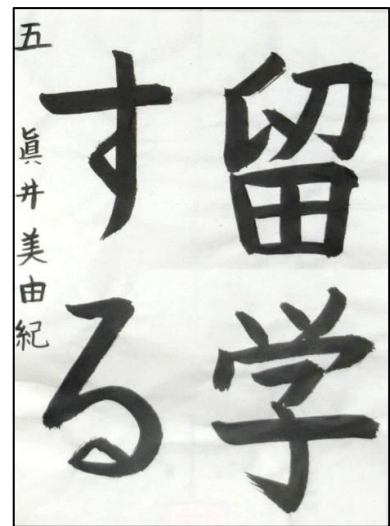 留学
する
五 眞井美由紀